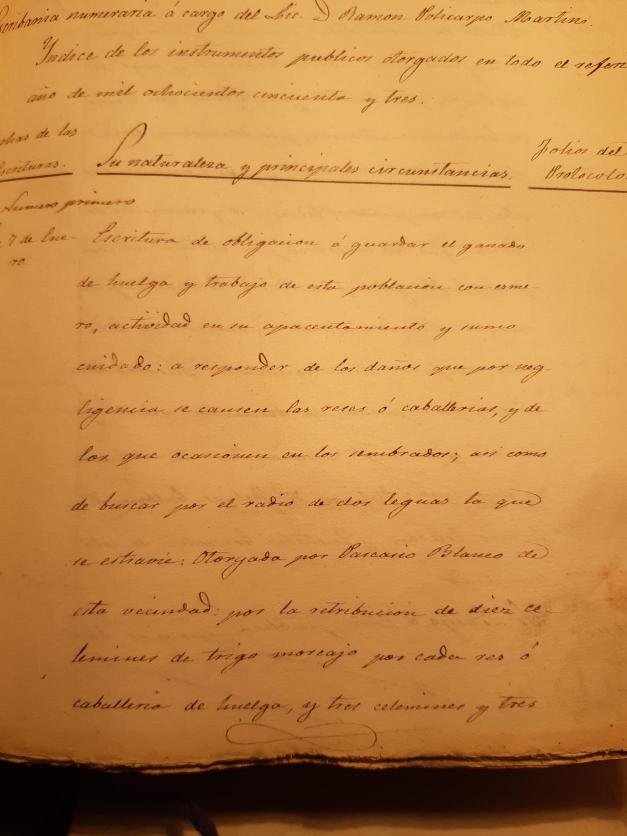 Escribania numeraria á cargo del Lic. D. Ramon Policarpo Martin.
Yndice de los instrumentos publicos otorgados en todo el refer
año de mil ochocientos cincuenta y tres.
chas de las
Escrituras.
Su naturaleza y principales circunstancias.
Folios del
Protocolo.
Numero primero
7 de Ene-
ro
Escritura de obligacion á guardar el ganado
de huelga y trabajo de esta poblacion con esme-
ro, actividad en su apacentamiento y sumo
cuidado: a responder de los daños que por neg-
ligencia se causen las reses ó caballerias, y de
los que ocasionen en los sembrados; asi como
de buscar por el radio de dos leguas la que
se estravie: Otorgada por Pascasio Blanco de
esta vecindad: por la retribucion de diez ce-
lemines de trigo morcajo por cada res ó
caballeria de huelga, y tres celemines y tres